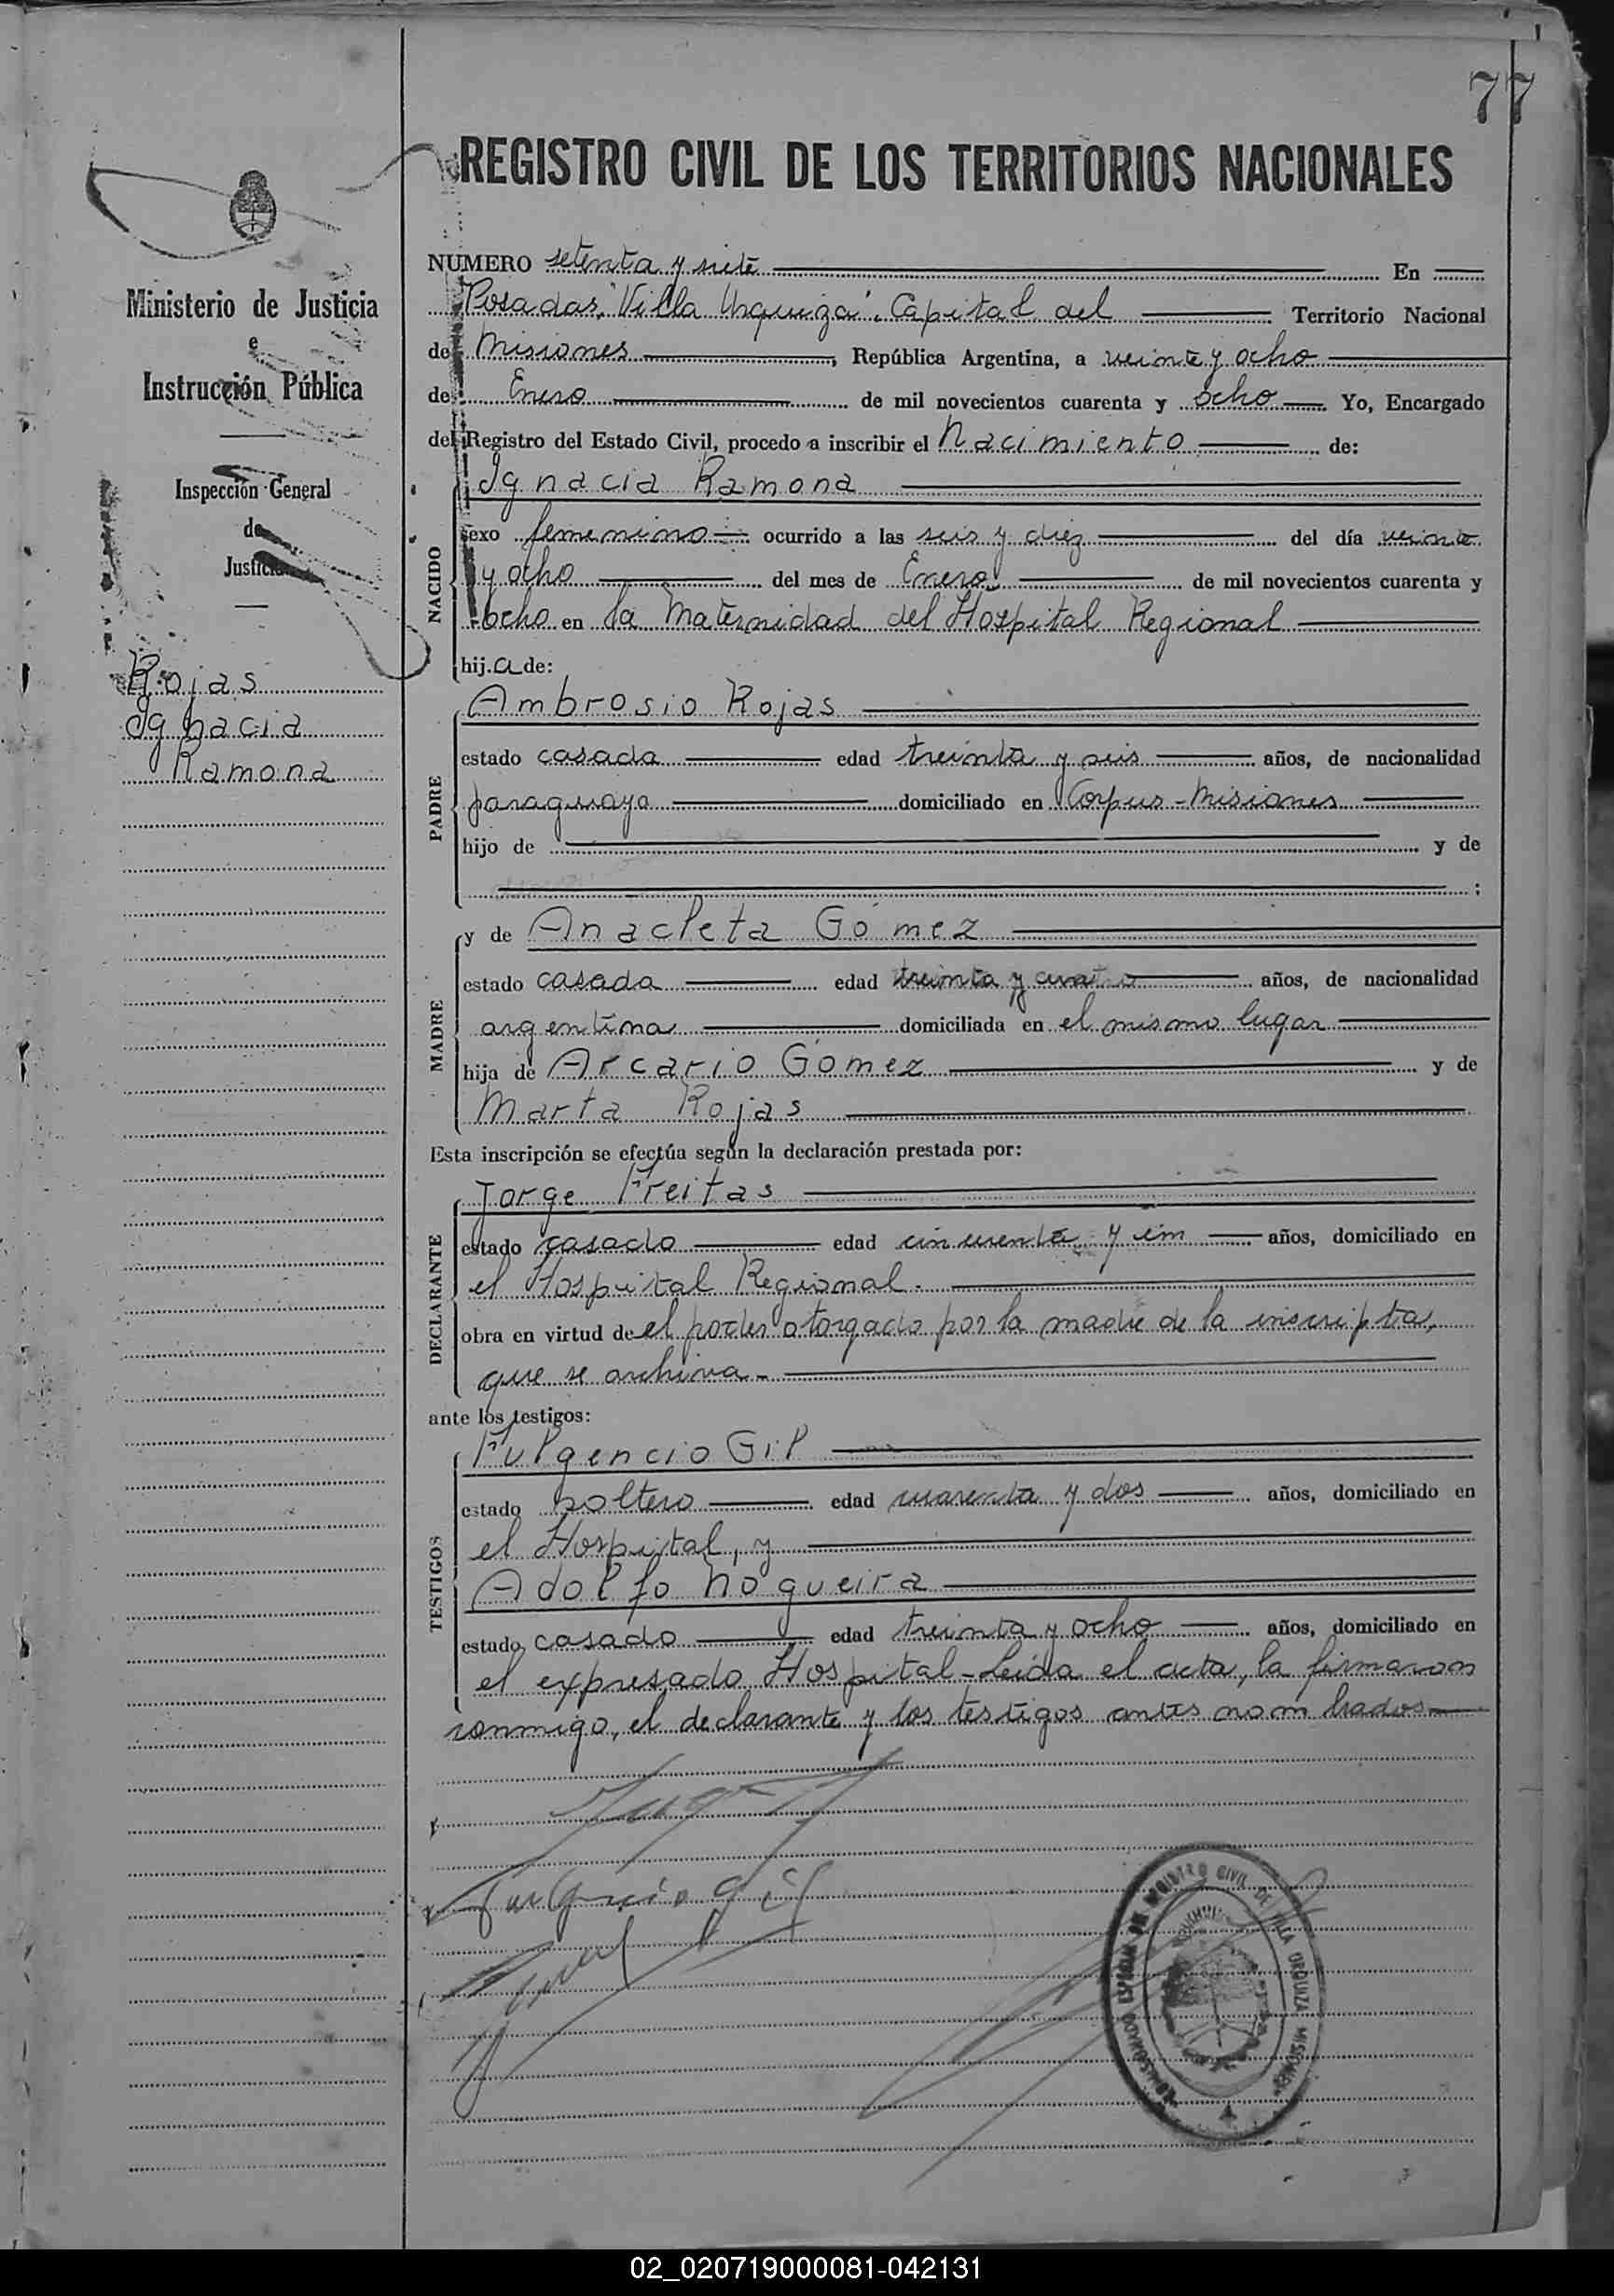 77
REGISTRO CIVIL DE LOS TERRITORIOS NACIONALES
Ministerio de Justicia
e
Instrucción Pública
Inspección General
de
Justicia
Rojas
Ignacia
Ramona
NUMERO setenta y siete En
Posadas, "Villa Urquiza". Capital del Territorio Nacional
de Misiones, República Argentina, a veinte y ocho
de Enero de mil novecientos cuarenta y ocho Yo, Encargado
del Registro del Estado Civil, procedo a inscribir el Nacimiento de:
NACIDO
Ignacia Ramona
sexo femenino ocurrido a las seis y diez del día veinte
y ocho del mes de Enero de mil novecientos cuarenta y
ocho en la Maternidad del Hospital Regional
hij.a de:
PADRE
Ambrosio Rojas
estado casada edad treinta y seis años, de nacionalidad
paraguaya domiciliado en Corpus - Misiones
hijo de y de
;
MADRE
y de Anacleta Gómez
estado casada edad treinta y cuatro años, de nacionalidad
argentina domiciliada en el mismo lugar
hija de Arcario Gómez y de
Marta Rojas
Esta inscripción se efectúa según la declaración prestada por:
DECLARANTE
Jorge Freitas
estado casado edad cincuenta y un años, domiciliado en
el Hospital Regional.
obra en virtud de el poder otorgado por la madre de la inscripta,
que se archiva.-
ante los testigos:
TESTIGOS
Fulgencio Gil
estado soltero edad cuarenta y dos años, domiciliado en
el Hospital, y
Adolfo Nogueira
estado casado edad treinta y ocho años, domiciliado en
el expresado Hospital - Leída el acta, la firmaron
conmigo, el declarante y los testigos antes nombrados
Fulgencio Gil
REGISTRO CIVIL DE VILLA URQUIZA MISIONES
02_020719000081-042131